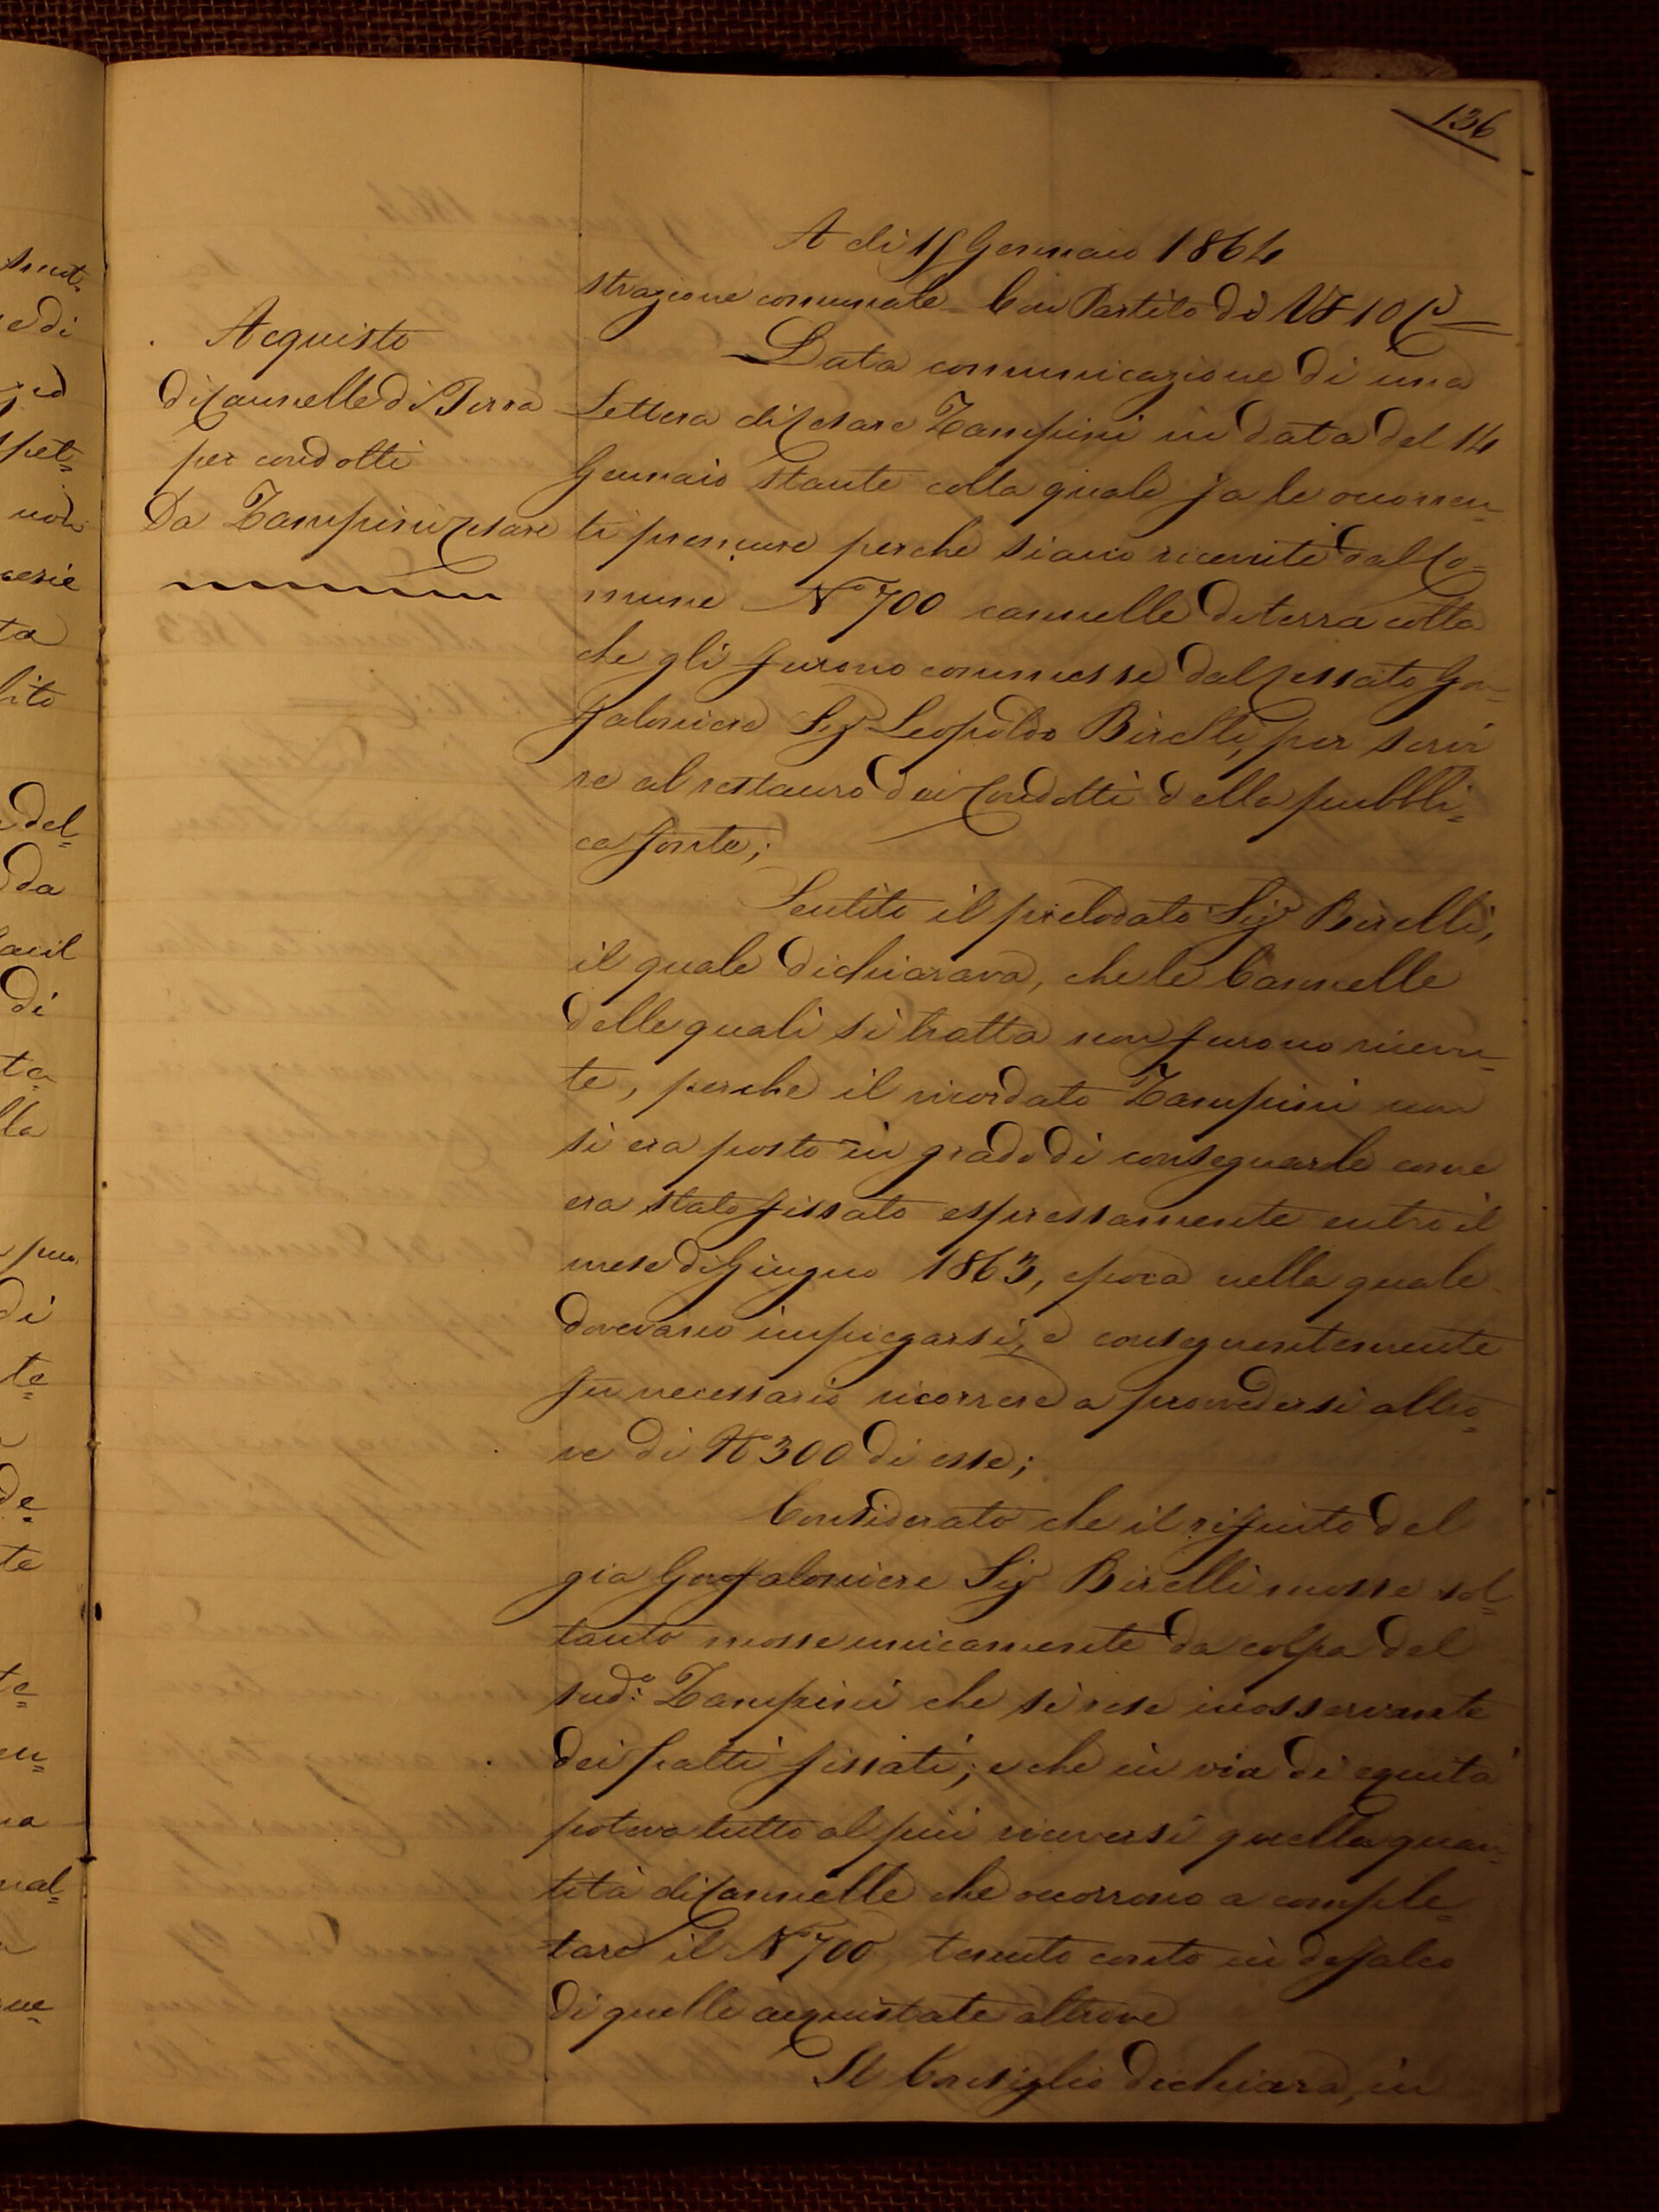 136
A di 15 Gennaio 1864
strazione comunale = Con Partito di VF 10 C =
Acquisto
di Cannelle di Terra
per condotti
Da Zampini Cesare
Data comunicazione di una
Lettera di Cesare Zampini in data del 14
Gennaio stante colla quale fa le occorren=
ti premure perche siano ricevute dal Co=
mune N° 700 cannelle di terra cotta
che gli furono commesse dal cessato Gon=
faloniere Sigr Leopoldo Birelli, per servi
re al restauro dei Condotti della pubbli=
ca fonte;
Sentito il prelodato Sigr Birelli,
il quale dichiarava, che le Cannelle
delle quali si tratta non furono ricevu=
te, perche il ricordato Zampini non
si era posto in grado di consegnarle come
era stato fissato espressamente entro il
mese di Giugno 1863, epoca nella quale
dovevano impiegarsi, e conseguentemente
fu necessario ricorrere a provvedersi altro=
ve di N° 300 di esse;
Considerato che il rifiuto del
gia Gonfaloniere Sigr Birelli mosse sol=
tanto mosse unicamente da colpa del
sud.° Zampini che si rese inosservante
dei patti fissati; e che in via di equità
poteva tutto al più riceversi quella quan=
tità di Cannelle che occorrono a comple=
tare il N° 700, tenuto conto in defalco
di quelle acquistate altrove
Il Consiglio dichiara, in